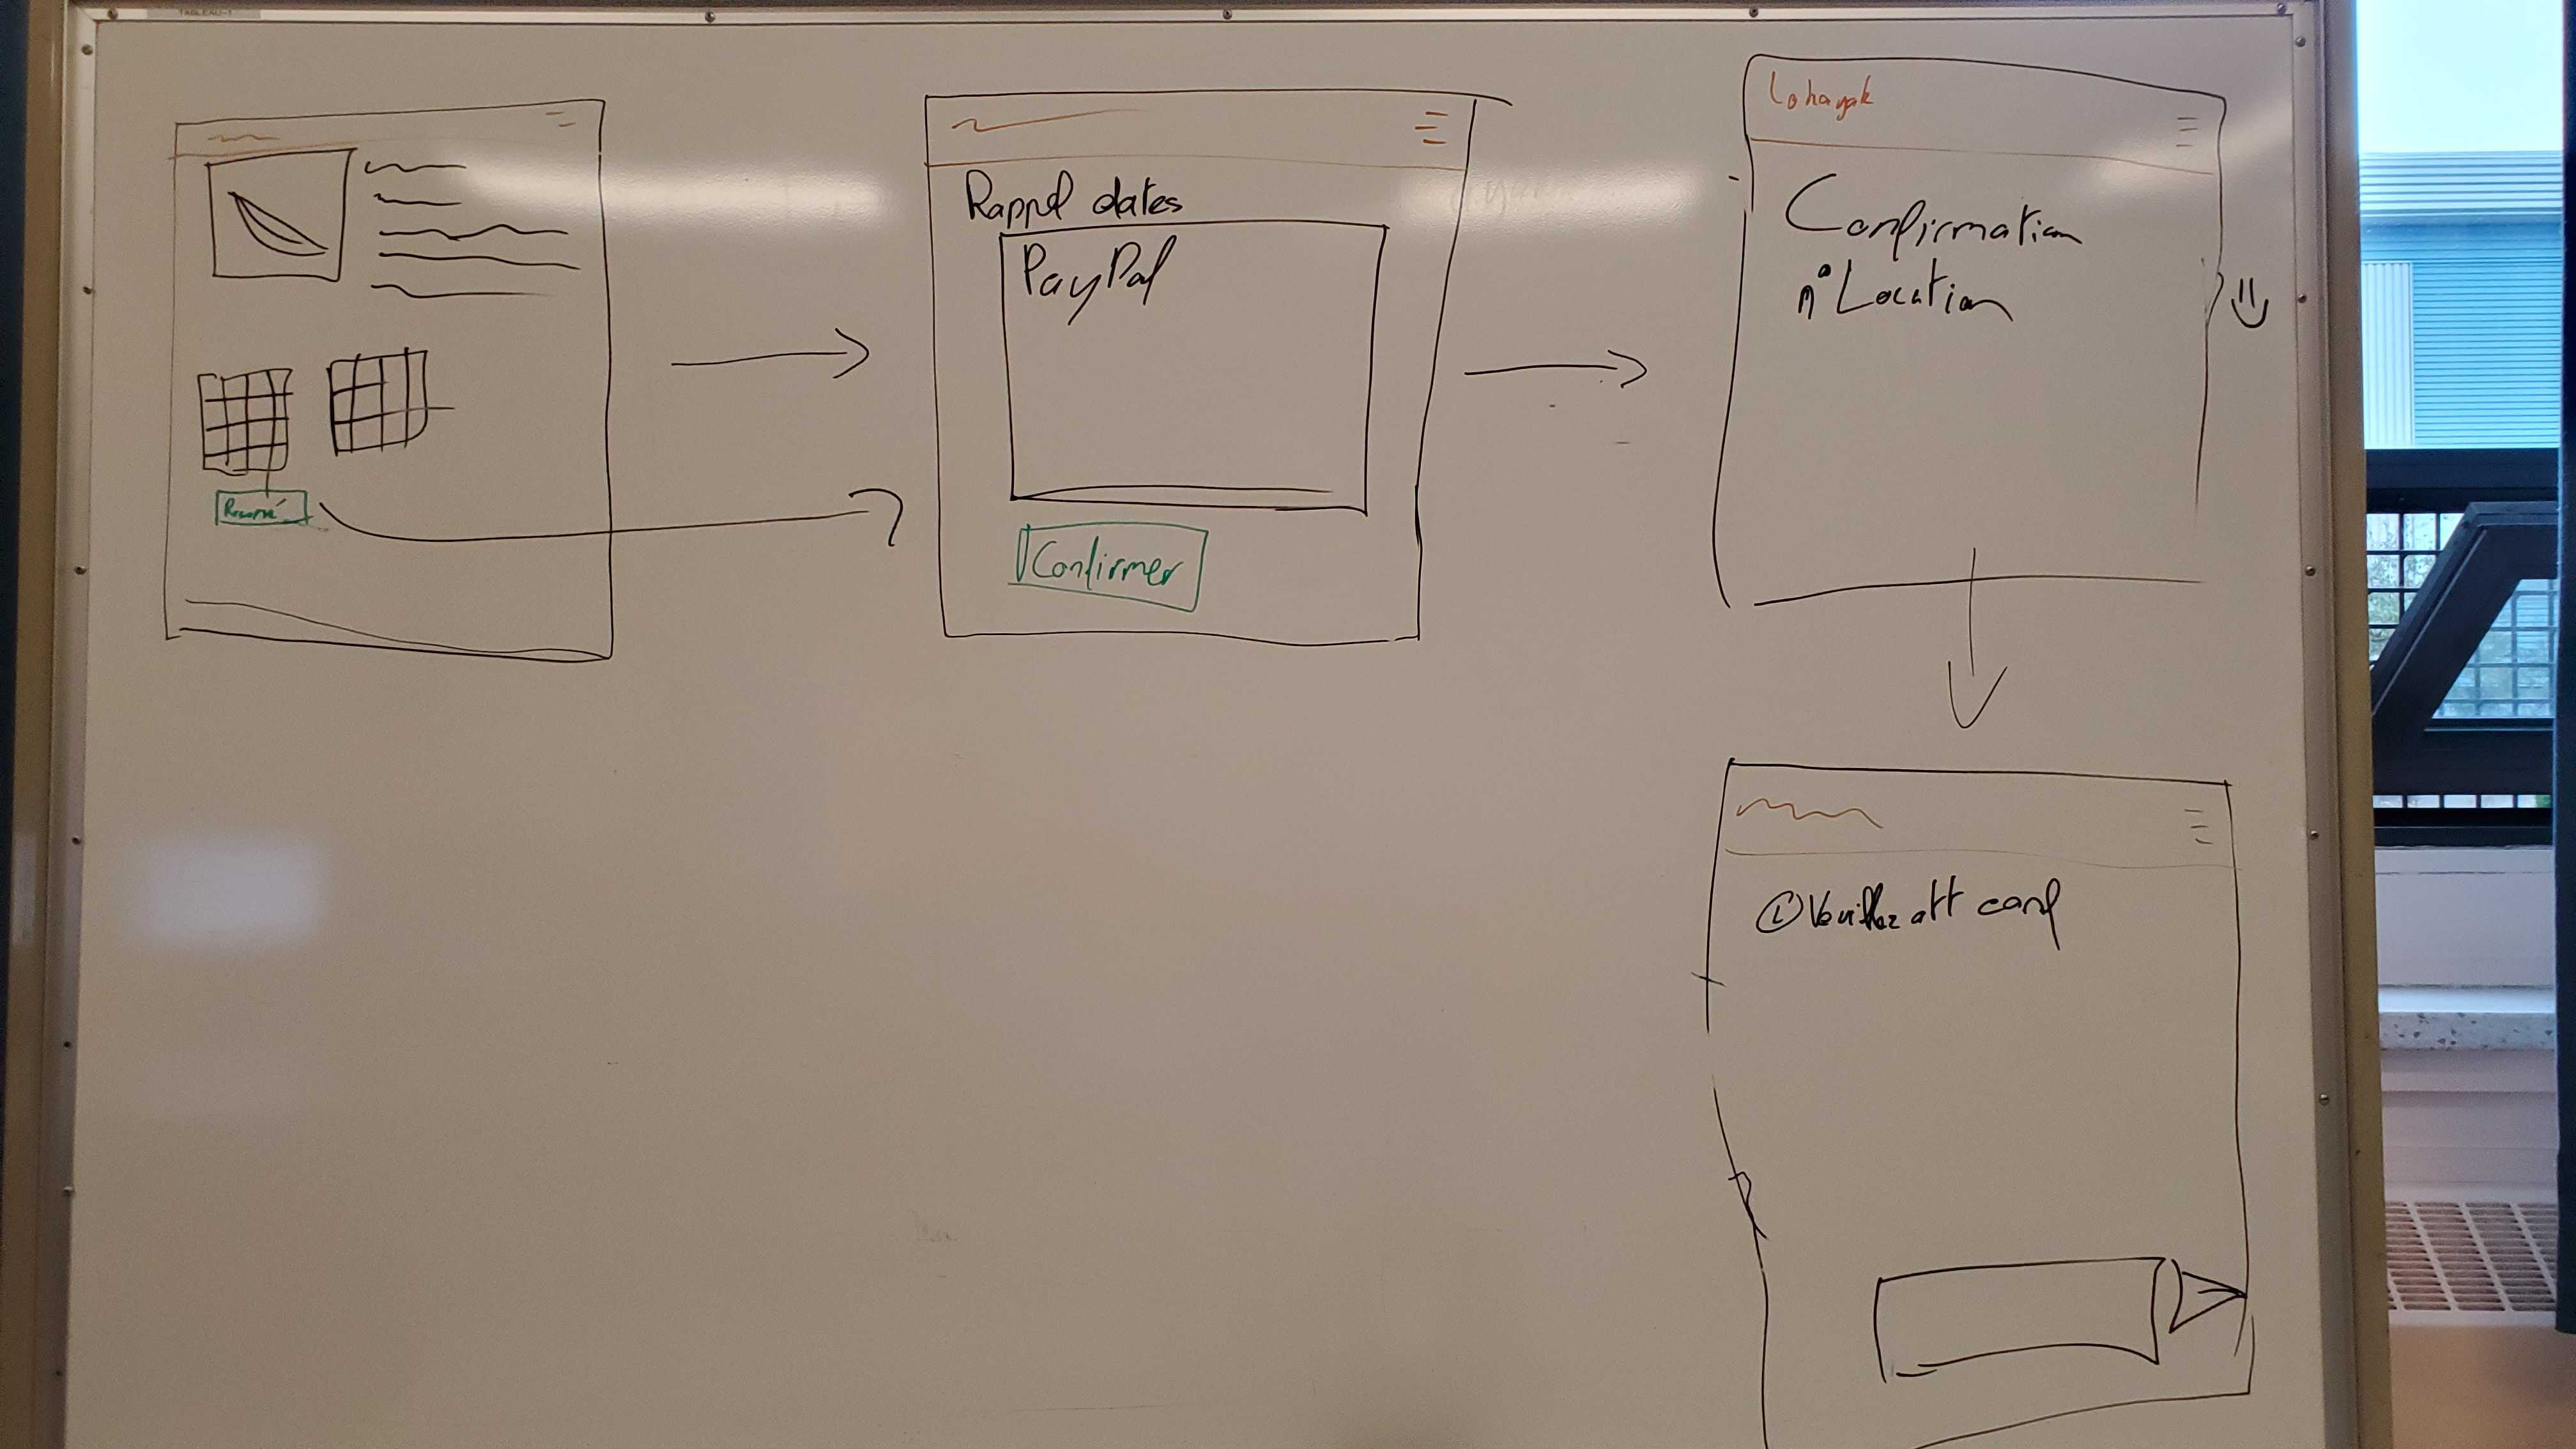 TABLEAU-1
Rappel dates
PayPal
Confirmer
Lohayak
Confirmation
n° Location
Veuillez att conf